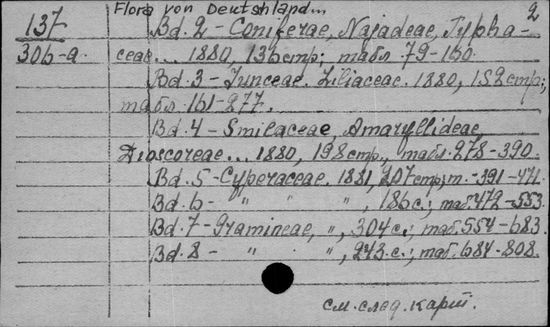 Flora von Deutshland... 2
137 Bd. 2 - Coniferae, Najadeae, Typha-
306-a. ceae... 1880, 136 стр; табл 79-160.
Bd. 3 - Junceae. Liliaceae. 1880, 152 стр;
табл. 161-277.
Bd. 4 - Smilaceae, Amaryllideae,
Dioscoreae... 1880, 198 стр., табл. 278-390.
Bd. 5 - Cyperaceae. 1881, 207 стр; т. -391-471.
Bd. 6 - " " ", 186 с.; таб 472-553.
Bd. 7 - Gramineae, ", 304 с.; таб. 554-683.
Bd. 8 - " ", 243. с.; таб. 684-808.
см. след. карт.